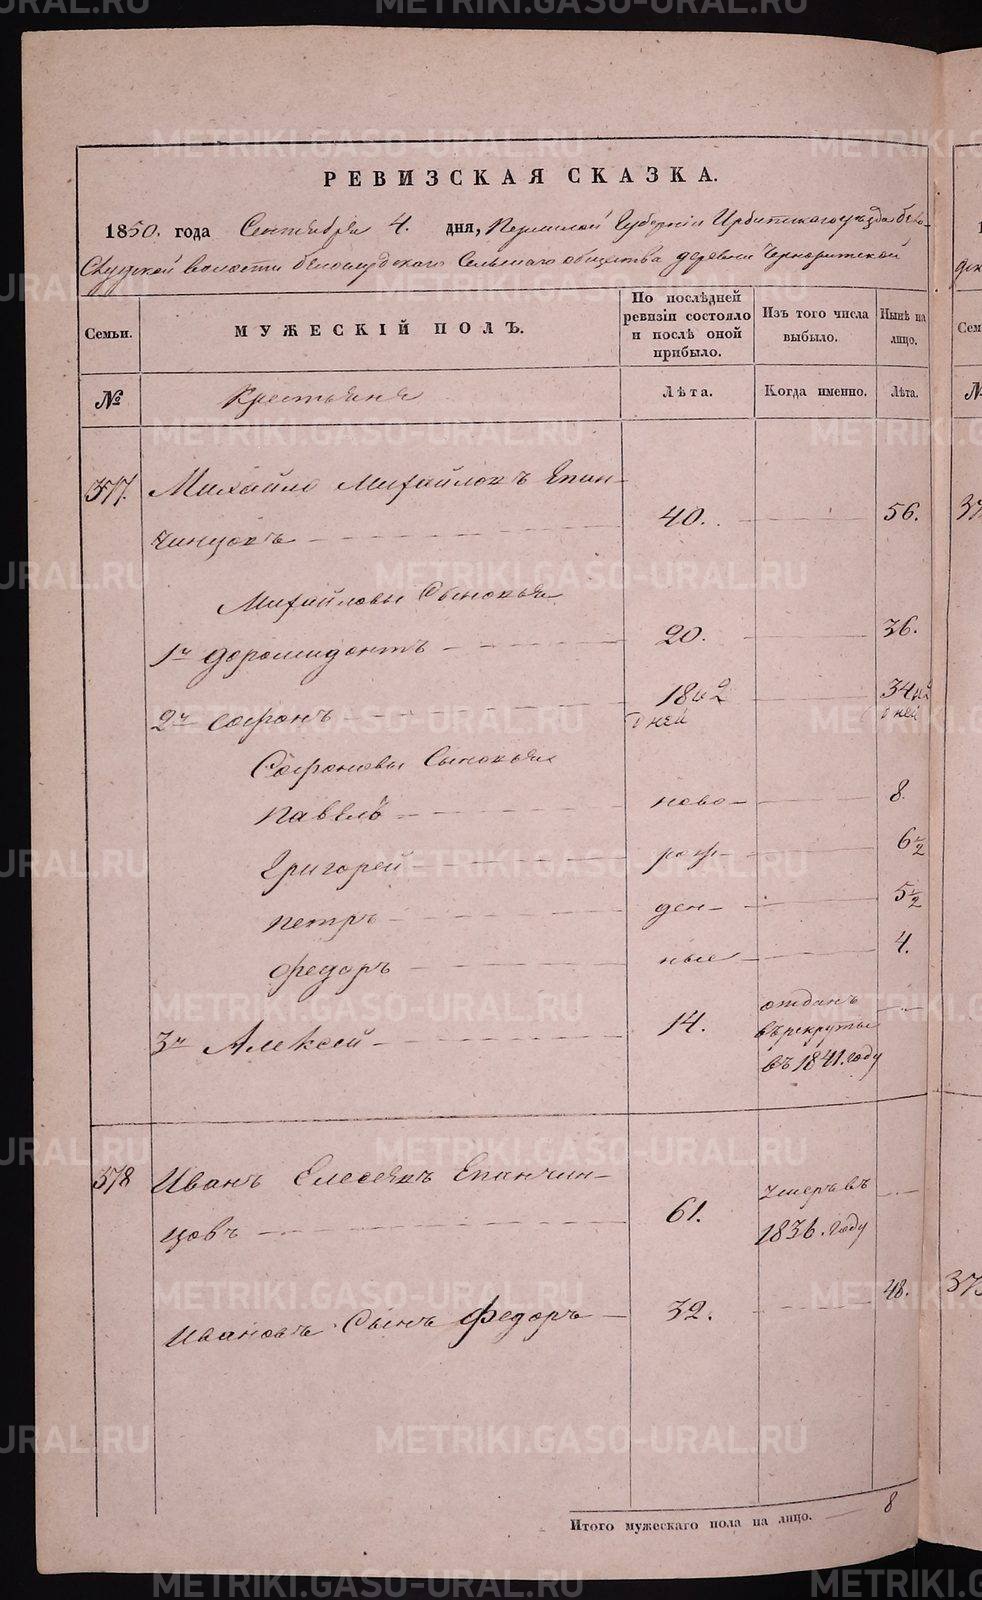 РЕВИЗСКАЯ СКАЗКА.
1850. года Сентября 4. дня, Пермской Губернии Ирбитскаго уѣзда бело-
Слудской волости белослудскаго Сельскаго общества деревни
Семьи.
МУЖЕСКІЙ ПОЛЪ.
По послѣдней ревизіи состояло и послѣ оной прибыло.
Изъ того числа выбыло.
Нынѣ на лицо.
№
Крестьяне
Лѣта.
Когда именно.
Лѣта.
377. Михайло Михайловъ Епан-
чинцовъ 40. 56.
Михайловы Сыновья
1й Дормидонтъ 20. 36.
2й Софонъ 18 34
дней дней
Софоновы Сыновья
Павелъ ново- 8.
Григорей рож- 6 1/2
Петръ ден- 5 1/2
Федоръ ные 4.
3й Алексей 14. отданъ
въ рекруты
въ 1841. году
378 Иванъ Елесеевъ Епанчин-
цовъ 61. умеръ въ
1836. году
Ивановъ Сынъ Федоръ 32. 48.
Итого мужескаго пола на лицо. 8
METRIKI.GASO-URAL.RU